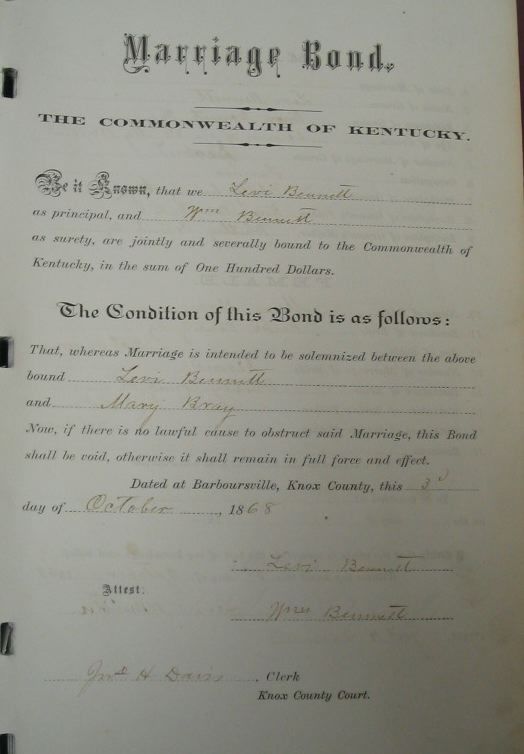 Marriage Bond.
THE COMMONWEALTH OF KENTUCKY.
Be it Known, that we Levi Bennett
as principal, and Wm Bennett
as surety, are jointly and severally bound to the Commonwealth of
Kentucky, in the sum of One Hundred Dollars.
The Condition of this Bond is as follows:
That, whereas Marriage is intended to be solemnized between the above
bound Levi Bennett
and Mary Bray
Now, if there is no lawful cause to obstruct said Marriage, this Bond
shall be void, otherwise it shall remain in full force and effect.
Dated at Barboursville, Knox County, this 3d
day of October, 1868
Levi Bennett
Attest:
Wm Bennett
H Davis, Clerk
Knox County Court.